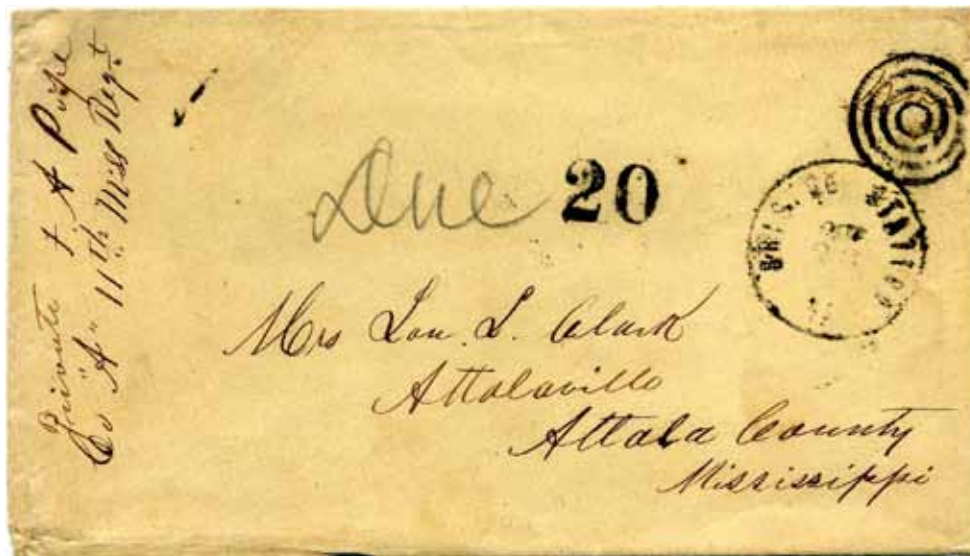 Private F A Pope
Co "A" 11th Miss Regt
Due 20
STATION
Mrs Lou. L. Clark
Attalaville
Attala County
Mississippi